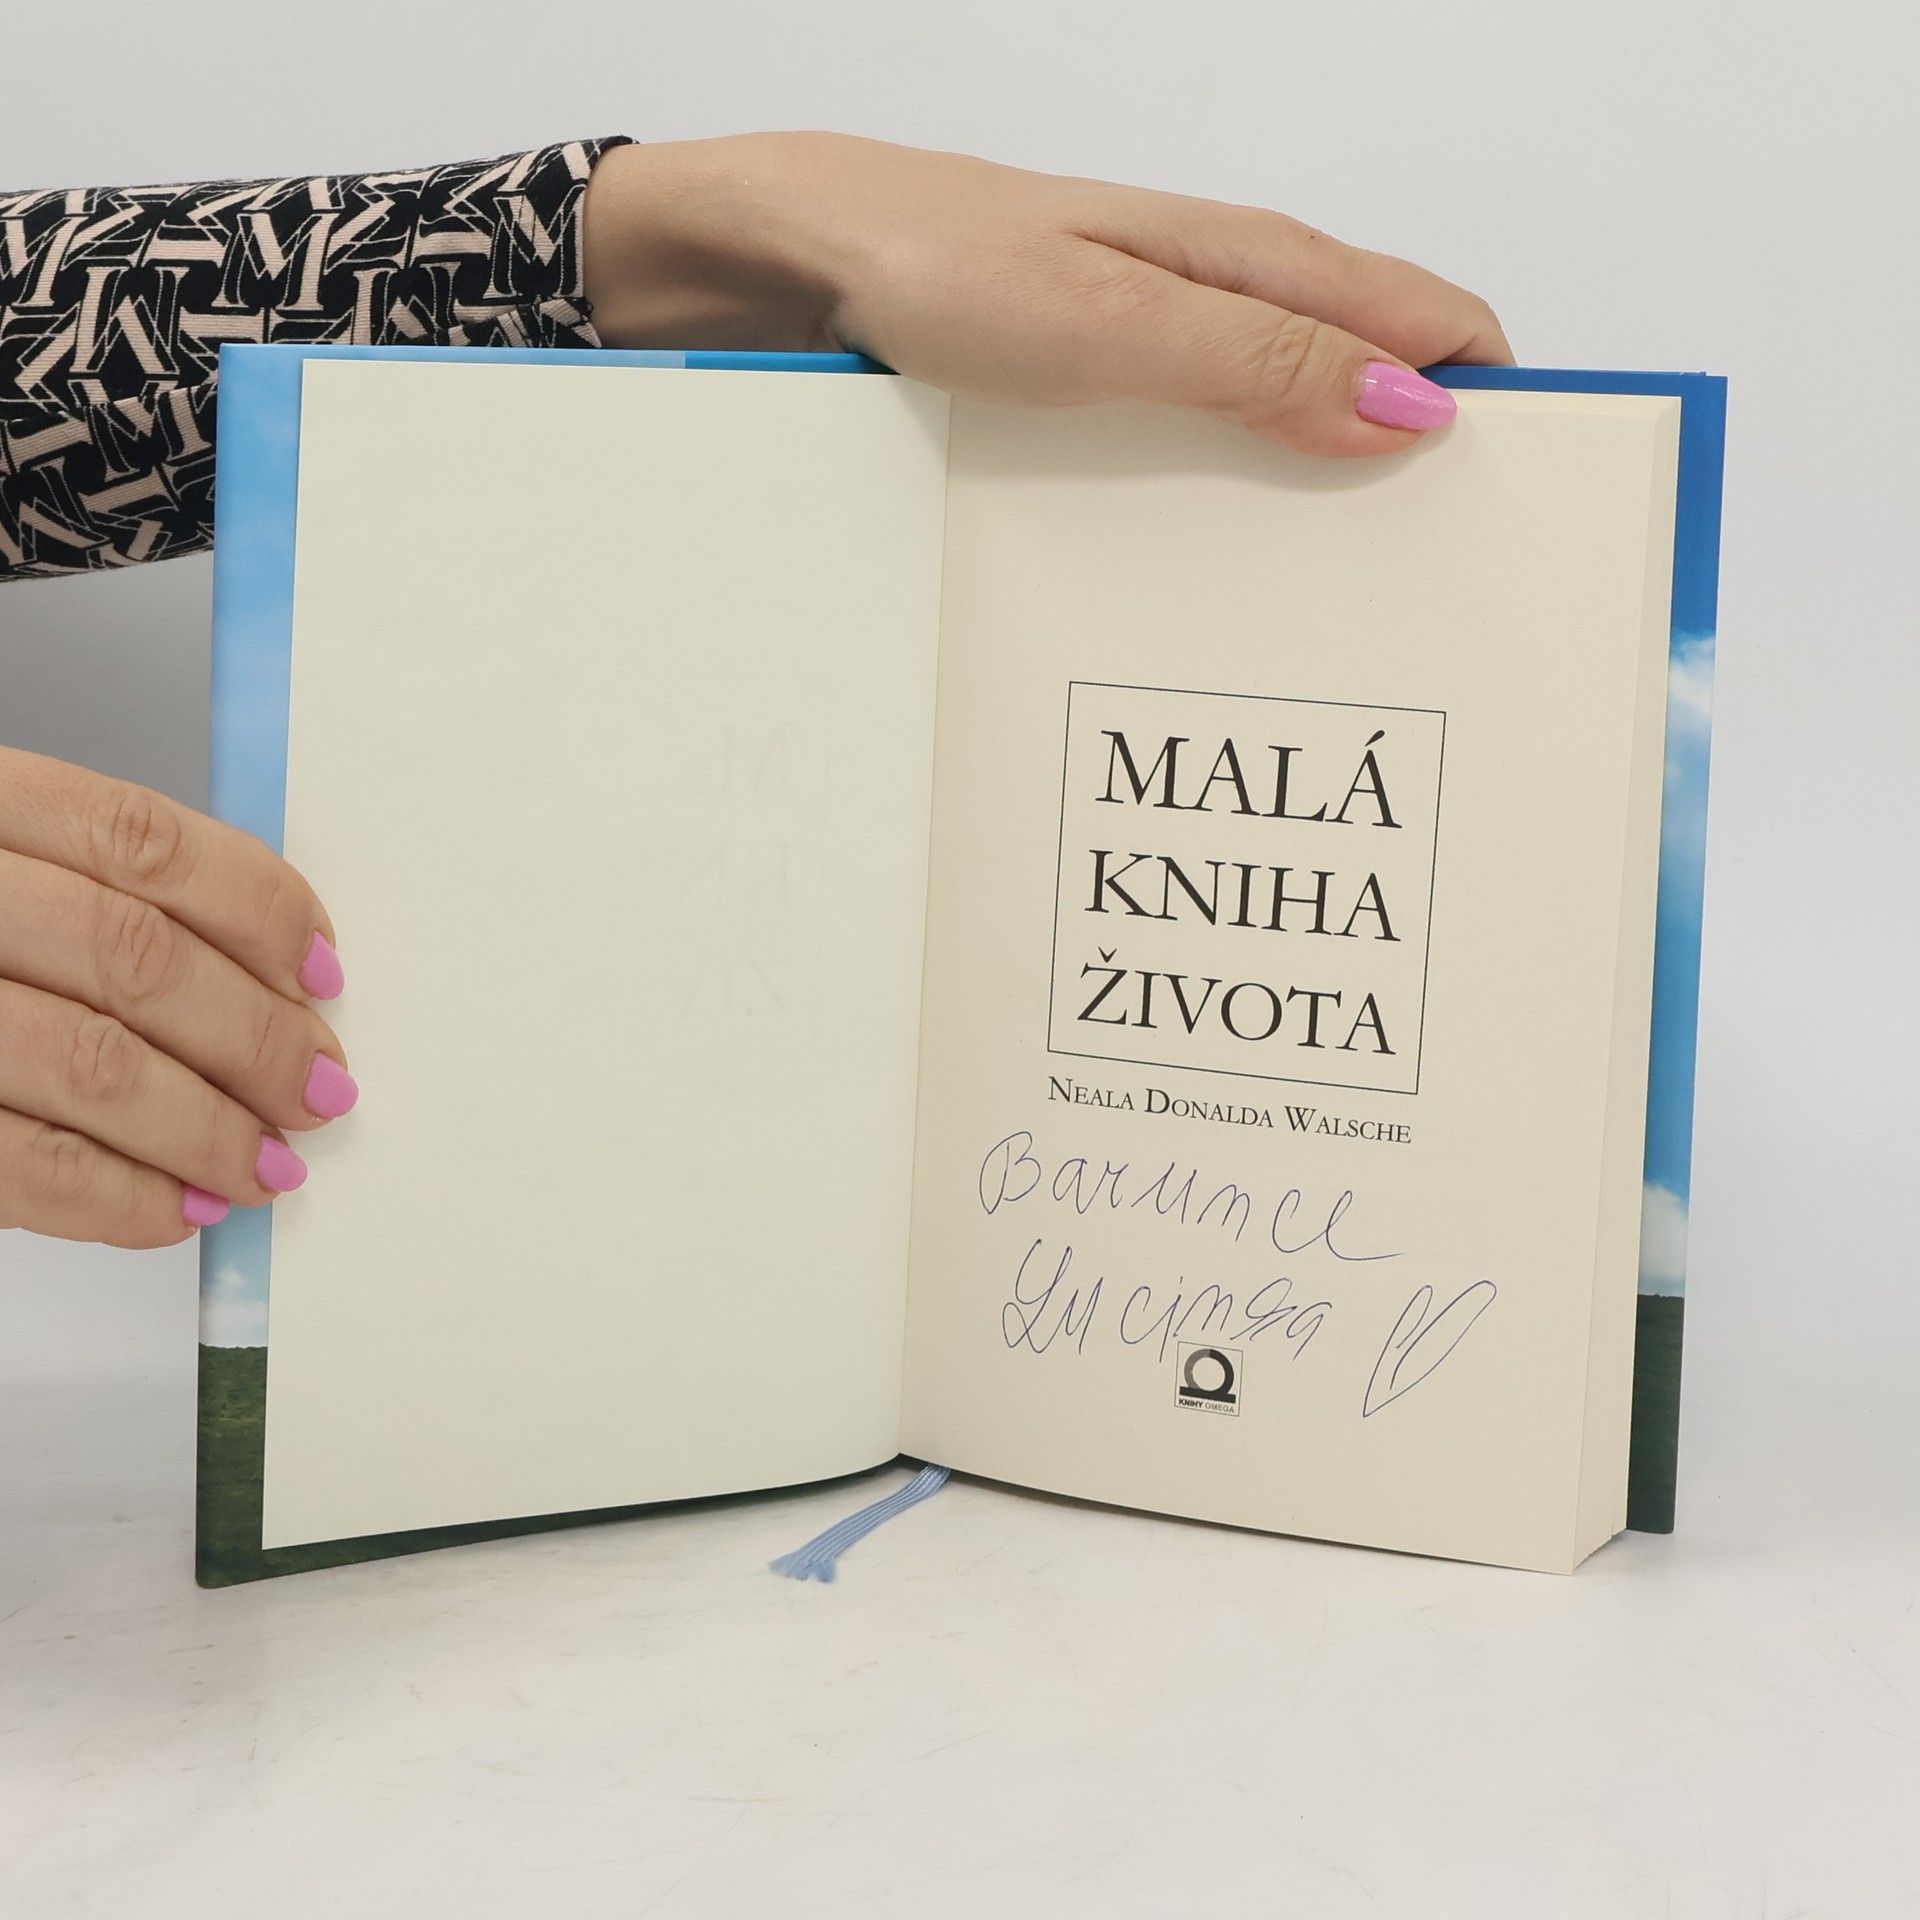 MALÁ
KNIHA
ŽIVOTA
NEALA DONALDA WALSCHE
Barunce
Lucinka
KNIHY OMEGA